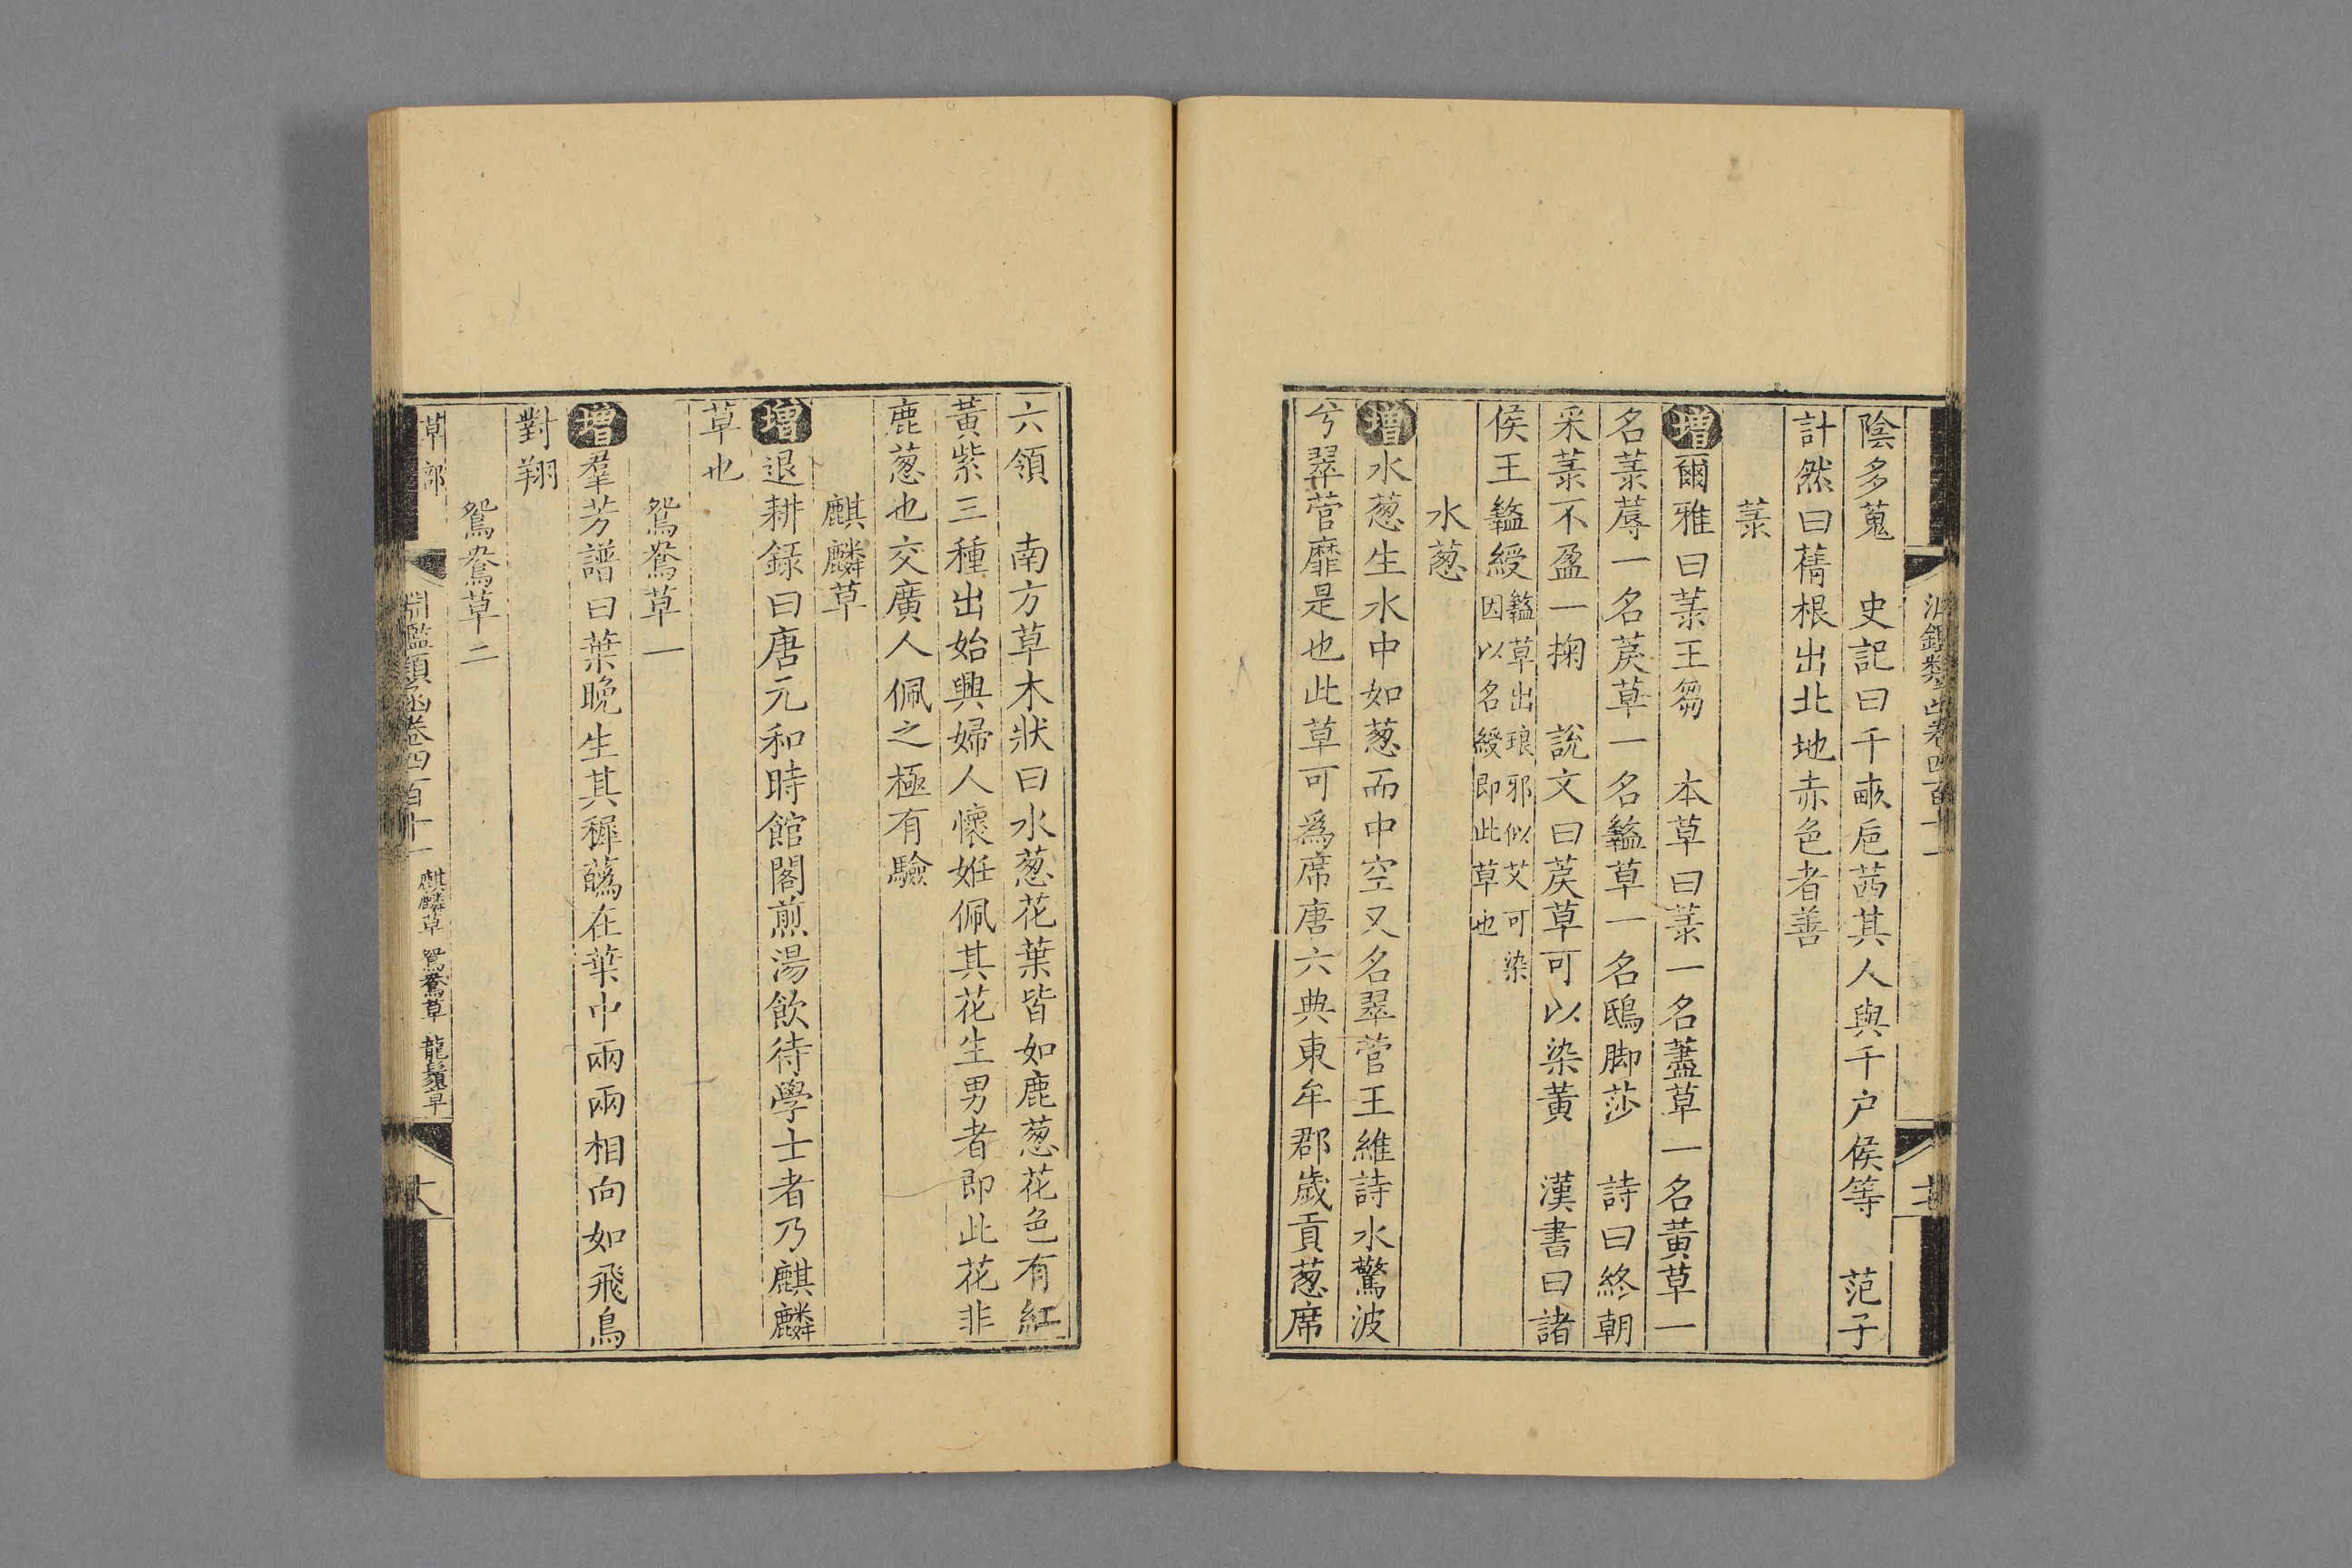 陰多蒐　史記曰千畞巵茜其人與千户侯等　范子
計然曰蒨根出北地赤色者善
菉
增爾雅曰菉王芻　本草曰菉一名藎草一名黃草一
名菉蓐一名莀草一名盭草一名鴟脚莎　詩曰終朝
采菉不盈一掬　說文曰莀草可以染黃　漢書曰諸
侯王盭綬盭草出琅邪似艾可染
因以名綬即此草也
水葱
增水葱生水中如葱而中空又名翠菅王維詩水驚波
兮翠菅靡是也此草可為席唐六典東牟郡歲貢葱席
六領　南方草木狀曰水葱花葉皆如鹿葱花色有紅
黃紫三種出始興婦人懷姙佩其花生男者即此花非
鹿葱也交廣人佩之極有驗
麒麟草
增退耕録曰唐元和時館閣煎湯飲待學士者乃麒麟
草也
鴛鴦草一
增羣芳譜曰葉晚生其穉蘤在葉中兩兩相向如飛鳥
對翔
鴛鴦草二
草部
淵鑑類函卷四百十一
麒麟草　鴛鴦草　龍鬚草